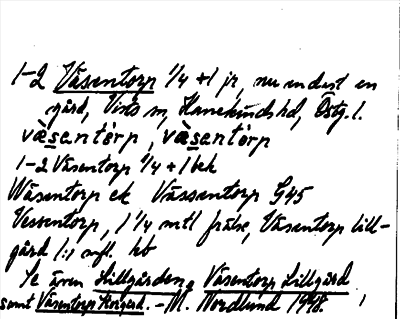 1-2 Väsentorp 1/4 + 1 jr, nu endast en
gård, Vists sn, Hanekinds hd, Östg. l.
væ̀santòrp, væ̀santòrp
1-2 Väsentorp 1/4 + 1 bek
Wäsentorp ek Vässentorp G45
Vessentorp, 1 1/4 mtl frälse, Väsentorp lill-
gård 1:1 mfl. kb
Se även Lillgården, Väsentorp Lillgård
samt Väsentorp Storgård. - M. Nordlund 1948.